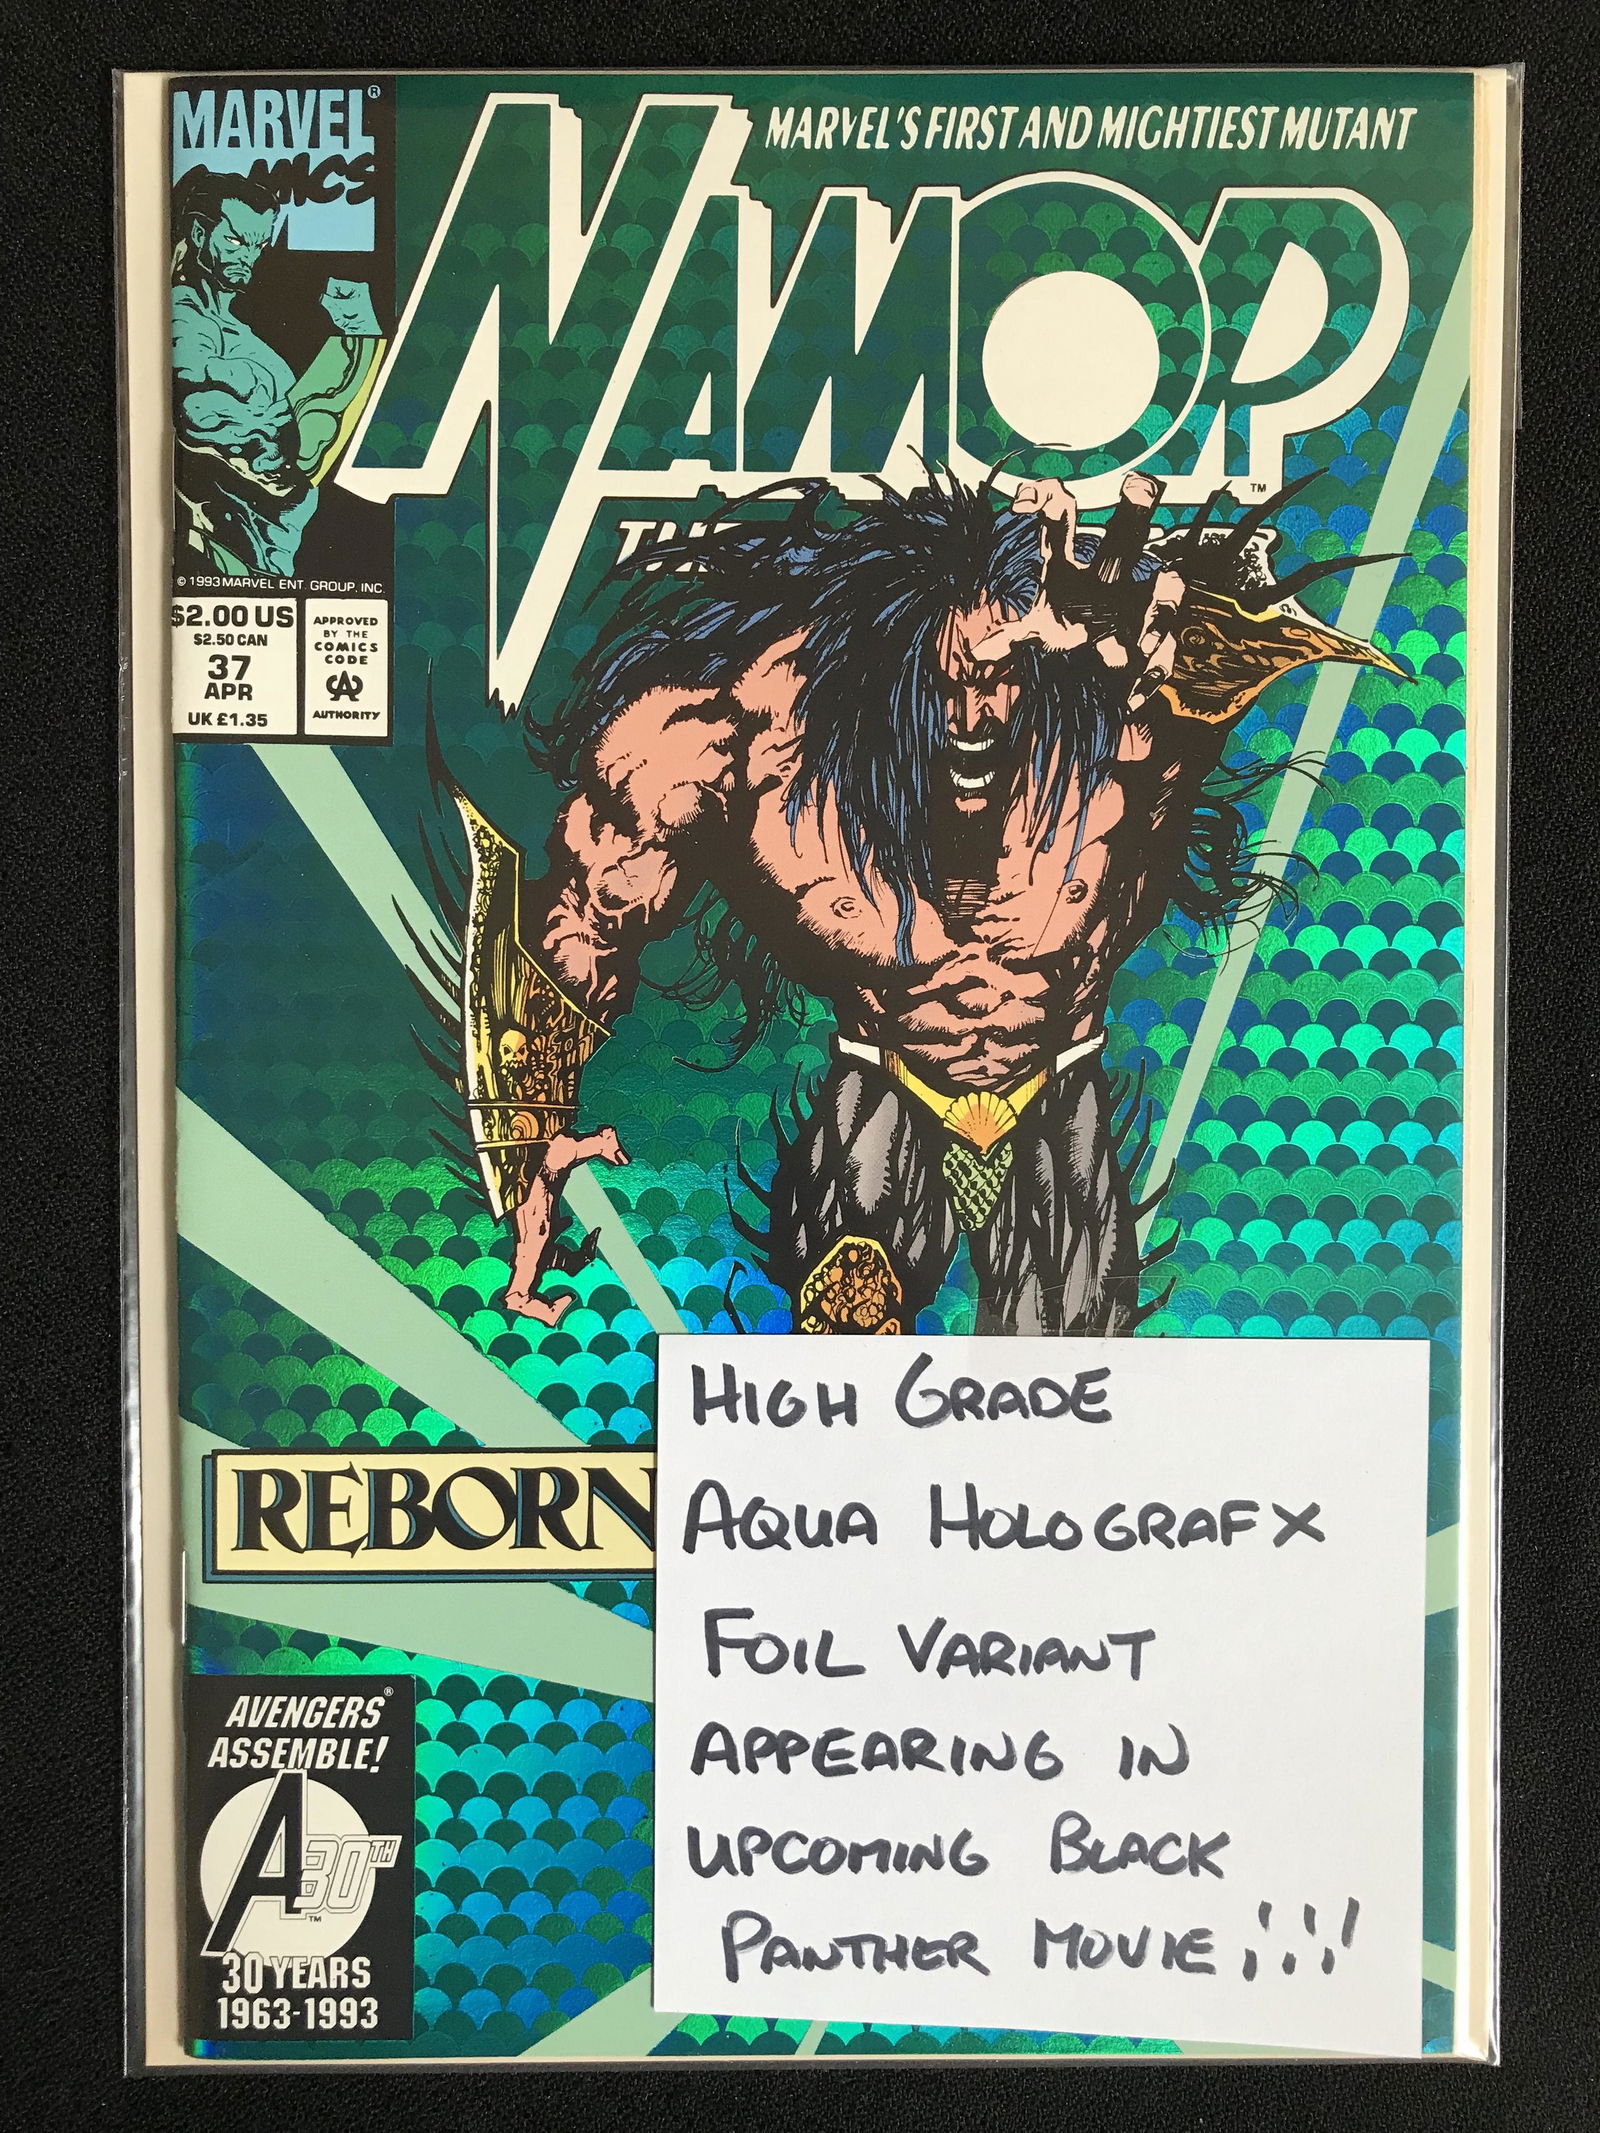 MARVEL®
COMICS
MARVEL'S FIRST AND MIGHTIEST MUTANT
NAMOR
TM
THE
© 1993 MARVEL ENT. GROUP, INC.
$2.00 US
$2.50 CAN
37
APR
UK £1.35
APPROVED
BY THE
COMICS
CODE
CA
AUTHORITY
REBORN
AVENGERS®
ASSEMBLE!
A 30TH
TM
30 YEARS
1963-1993
HIGH GRADE
AQUA HOLOGRAFX
FOIL VARIANT
APPEARING IN
UPCOMING BLACK
PANTHER MOVIE !!!